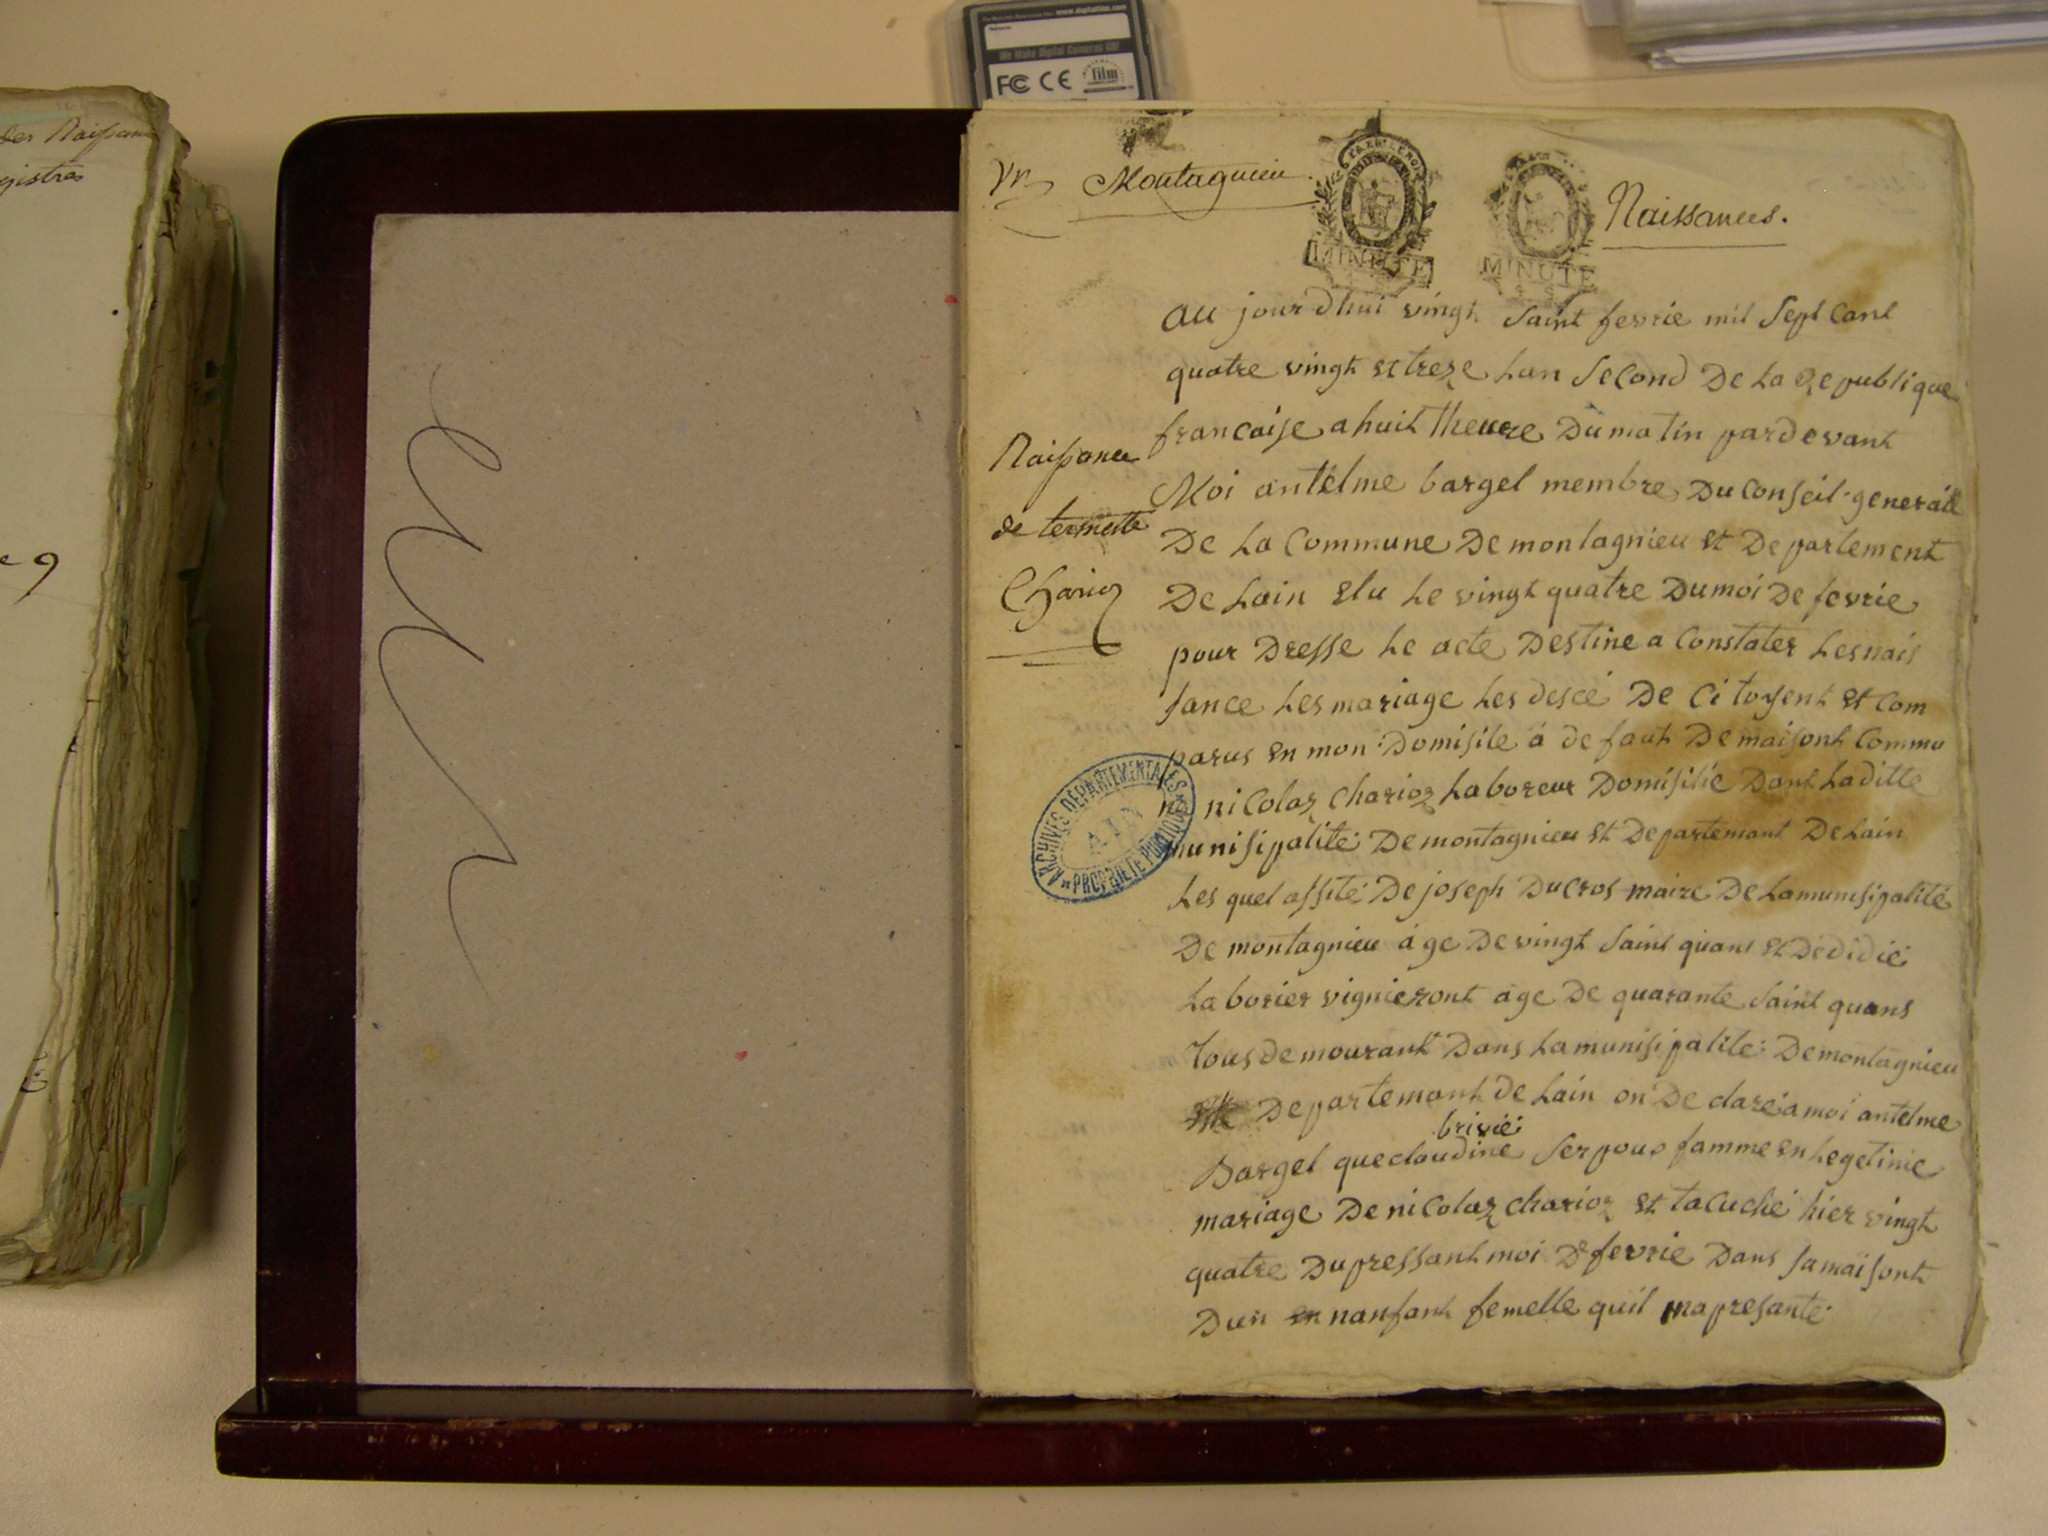 www.digitalfilm.com
We Make Digital Cameras GO!
FC CE film
des Naissan
egistres
e 9
Montagnieu
Naissances.
MINUTE
MINUTE
Naissance
de
Charioz
ARCHIVES DEPARTEMENTALES
AIN
PROPRIETE PUBLIQUE
au jourdhui vingt saint fevrie mil sept cant
quatre vingt et treze Lan second De La Republique
francaise a huit theure Du matin pardevant
Moi antelme bargel membre Du Conseil general
De La Commune De montagnieu et Departement
De Lain elu Le vingt quatre Du moi De fevrie
pour Dresse Le acte Destine a Constater Les nais
sance Les mariage Les descé De Citoyent et Com
parus en mon Domisile á defaut De maisont Commu
n nicolaz charioz Laboreur Domisilié Dant Laditte
munisipalité De montagnieu et Departemant De Lain
Les quel assité De joseph Ducros maire De La munisipalité
De montagnieu áge De vingt saint quans et De didié
Laborier vignieront age De quarante saint quans
tous demourant Dans La munisipalité De montagnieu
Departemant de Lain on De claré a moi antelme
brivié
Bargel que claudine serpous famme en Legetime
mariage De nicolaz charioz et tacuché hier vingt
quatre Du pressant moi De fevrie Dans sa maisont
Dun en nanfant femelle quil mapresante